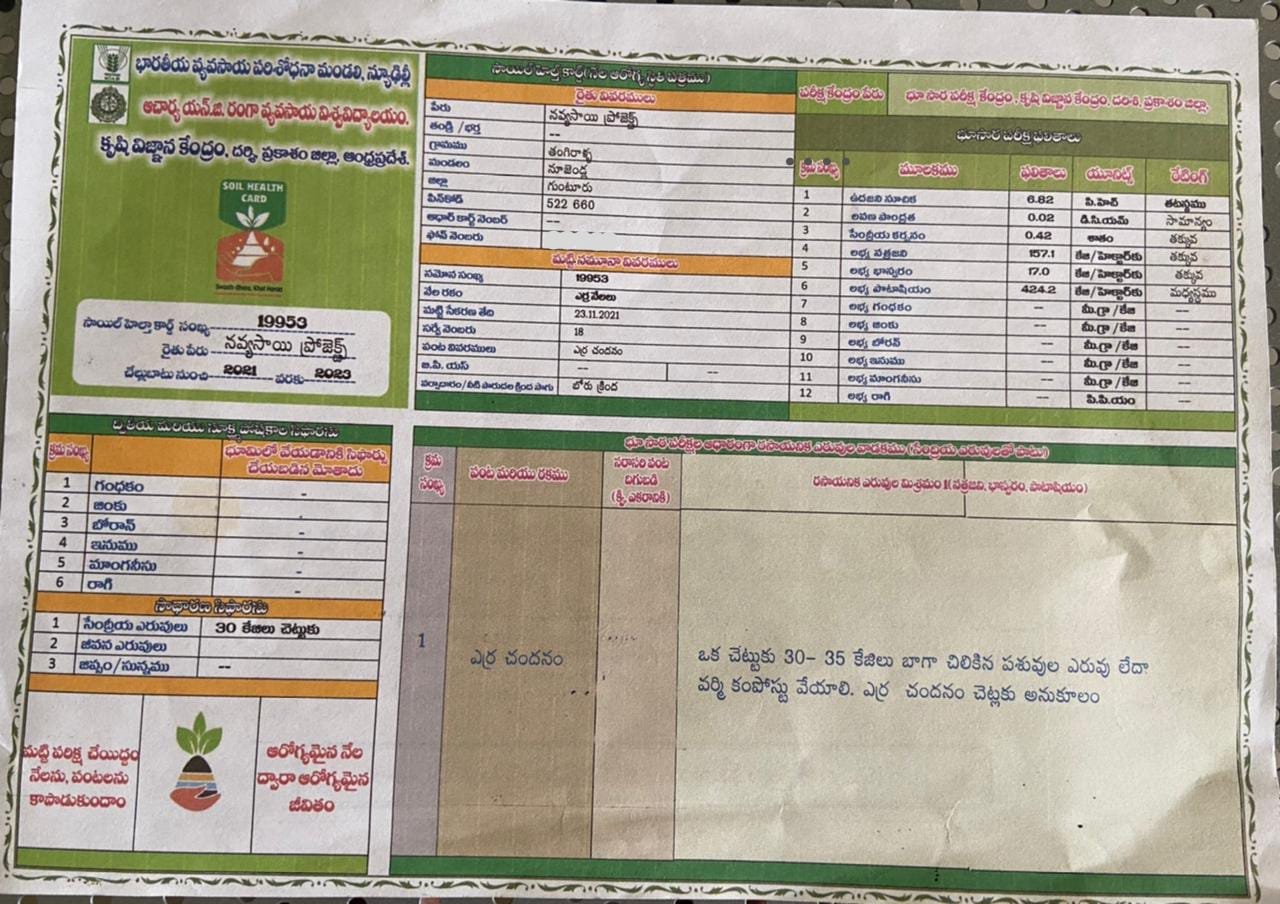 భారతీయ వ్యవసాయ పరిశోధనా మండలి, న్యూఢిల్లీ
ఆచార్య యన్.జి. రంగా వ్యవసాయ విశ్వవిద్యాలయం.
కృషి విజ్ఞాన కేంద్రం, దర్శి, ప్రకాశం జిల్లా, ఆంధ్రప్రదేశ్.
SOIL HEALTH
CARD
Swasth Dhara, Khet Haraa
సాయిల్ హెల్త్ కార్డ్ సంఖ్య 19953
రైతు పేరు నవ్యసాయి ప్రోజెక్ట్స్
చెల్లుబాటు నుంచి 2021 వరకు 2023
సాయిల్ హెల్త్ కార్డ్ (నేల ఆరోగ్య స్థితి పత్రము)
రైతు వివరములు
పేరు నవ్యసాయి ప్రోజెక్ట్స్
తండ్రి /భర్త --
గ్రామము తంగిరాళ్ళ
మండలం నూజెండ్ల
జిల్లా గుంటూరు
పిన్‌కోడ్ 522 660
ఆధార్ కార్డ్ నెంబర్ --
ఫోన్ నెంబరు
మట్టి నమూనా వివరములు
నమోన సంఖ్య 19953
నేల రకం ఎర్ర నేలలు
మట్టి సేకరణ తేది 23.11.2021
సర్వే నెంబరు 18
పంట వివరములు ఎర్ర చందనం
జి.పి. యస్ -- --
వర్షాదారం/నీటి పారుదల క్రింద సాగు బోరు క్రింద
పరీక్ష కేంద్రం పేరు భూ సార పరీక్ష కేంద్రం, కృషి విజ్ఞాన కేంద్రం, దరిశి, ప్రకాశం జిల్లా,
భూసార పరీక్ష ఫలితాలు
క్రమ సంఖ్య మూలకము ఫలితాలు యూనిట్స్ రేటింగ్
1 ఉదజని సూచిక 6.82 పి.హెచ్ తటస్థము
2 లవణ సాంద్రత 0.02 డి.సి.యమ్ సామాన్యం
3 సేంద్రీయ కర్బనం 0.42 శాతం తక్కువ
4 లభ్య నత్రజని 157.1 కేజి/హెక్టార్‌కు తక్కువ
5 లభ్య భాస్వరం 17.0 కేజి/హెక్టార్‌కు తక్కువ
6 లభ్య పొటాషియం 424.2 కేజి/హెక్టార్‌కు మధ్యస్థము
7 లభ్య గంధకం -- మి.గ్రా /కేజి ---
8 లభ్య జింకు -- మి.గ్రా /కేజి ---
9 లభ్య బోరన్ -- మి.గ్రా /కేజి ---
10 లభ్య ఇనుము -- మి.గ్రా /కేజి ---
11 లభ్య మాంగనీసు -- మి.గ్రా /కేజి ---
12 లభ్య రాగి -- పి.పి.యం ---
ద్వితీయ మరియు సూక్ష్మపోషకాల సిఫారసు
క్రమ సంఖ్య భూమిలో వేయడానికి సిఫార్సు
చేయబడిన మోతాదు
1 గంధకం -
2 జింకు -
3 బోరాన్ -
4 ఇనుము -
5 మాంగనీసు -
6 రాగి -
సాధారణ సిఫారసు
1 సేంద్రీయ ఎరువులు 30 కేజీలు చెట్టుకు
2 జీవన ఎరువులు
3 జిప్సం/సున్నము --
మట్టి పరీక్ష చేయిద్దం
నేలను, పంటలను
కాపాడుకుందాం
ఆరోగ్యమైన నేల
ద్వారా ఆరోగ్యమైన
జీవితం
భూ సార పరీక్షల ఆధారంగా రసాయనిక ఎరువుల వాడకము (సేంద్రీయ ఎరువులతో పాటు)
క్రమ సంఖ్య
పంట మరియు రకము
సరాసరి పంట
దిగుబడి
(క్వి. ఎకరానికి)
రసాయనిక ఎరువుల మిశ్రమం 1(నత్రజని, భాస్వరం, పొటాషియం)
1 ఎర్ర చందనం
ఒక చెట్టుకు 30- 35 కేజీలు బాగా చిలికిన పశువుల ఎరువు లేదా
వర్మి కంపోస్టు వేయాలి. ఎర్ర చందనం చెట్లకు అనుకూలం